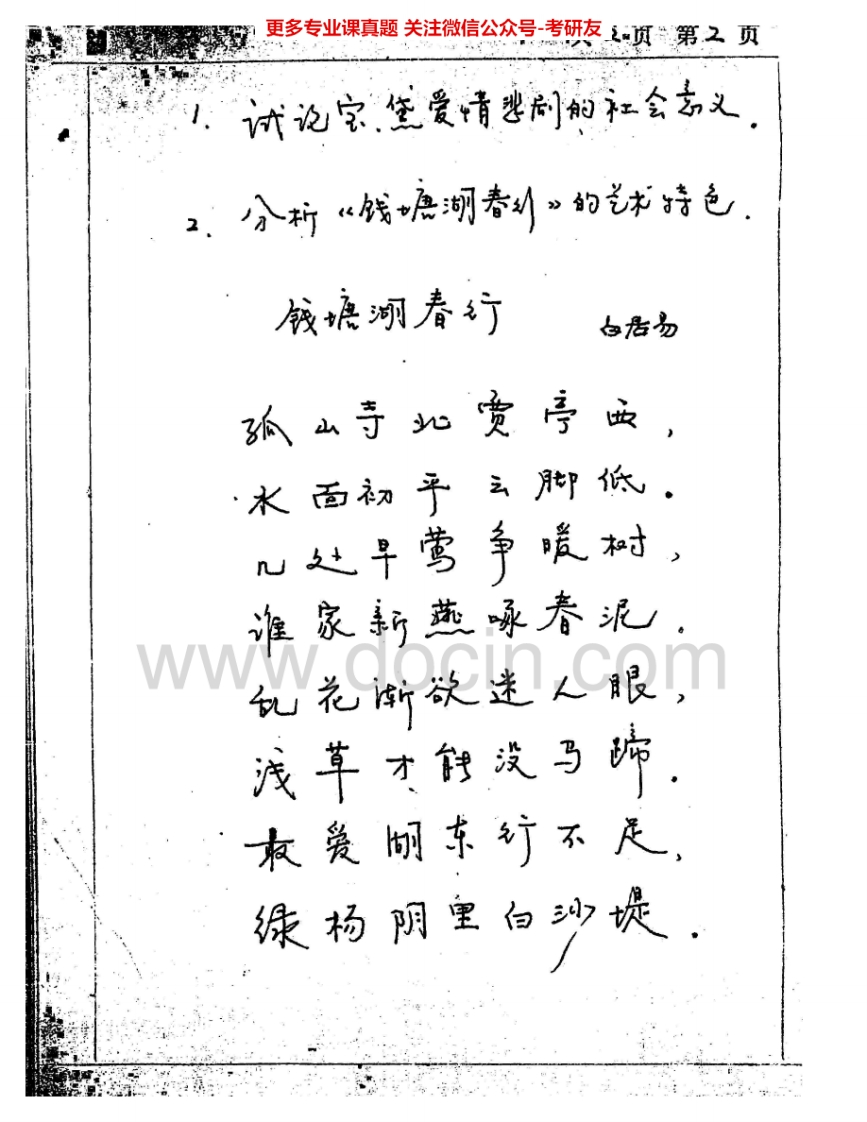 更多专业课真题 关注微信公众号-考研友
页 第2页
1. 试论宝、黛爱情悲剧的社会意义.
2. 分析《钱塘湖春行》的艺术特色.
钱塘湖春行 白居易
孤山寺北贾亭西,
水面初平云脚低.
几处早莺争暖树,
谁家新燕啄春泥.
www.docin.com
乱花渐欲迷人眼,
浅草才能没马蹄.
最爱湖东行不足,
绿杨阴里白沙堤.